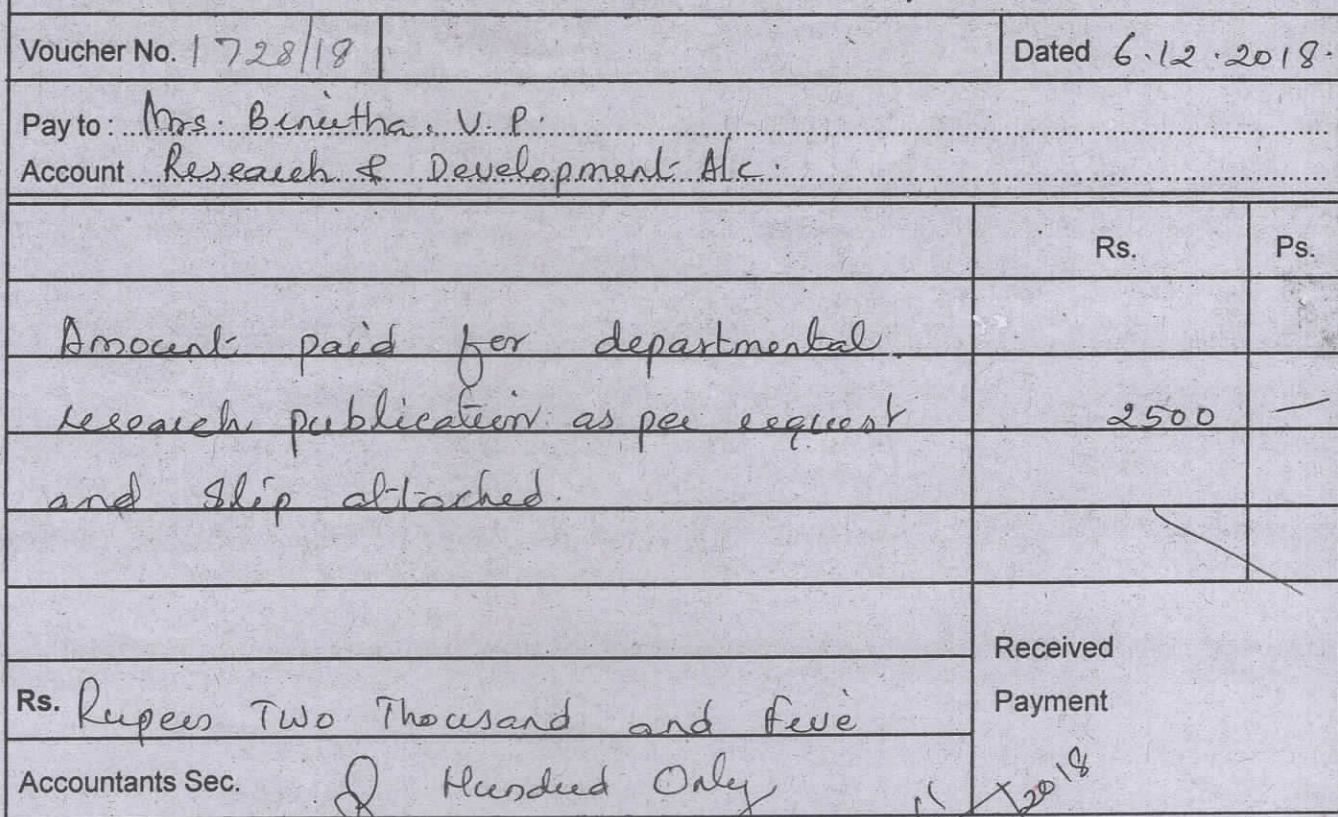 Voucher No. 1728/18 Dated 6.12.2018.
Pay to : Mrs. Binitha. V. P.
Account Research & Development A/c.
Rs. Ps.
Amount paid for departmental
research publication as per request 2500 —
and slip attached.
Received
Payment
Rs. Rupees Two Thousand and Five
Accountants Sec. Hundred Only
2018